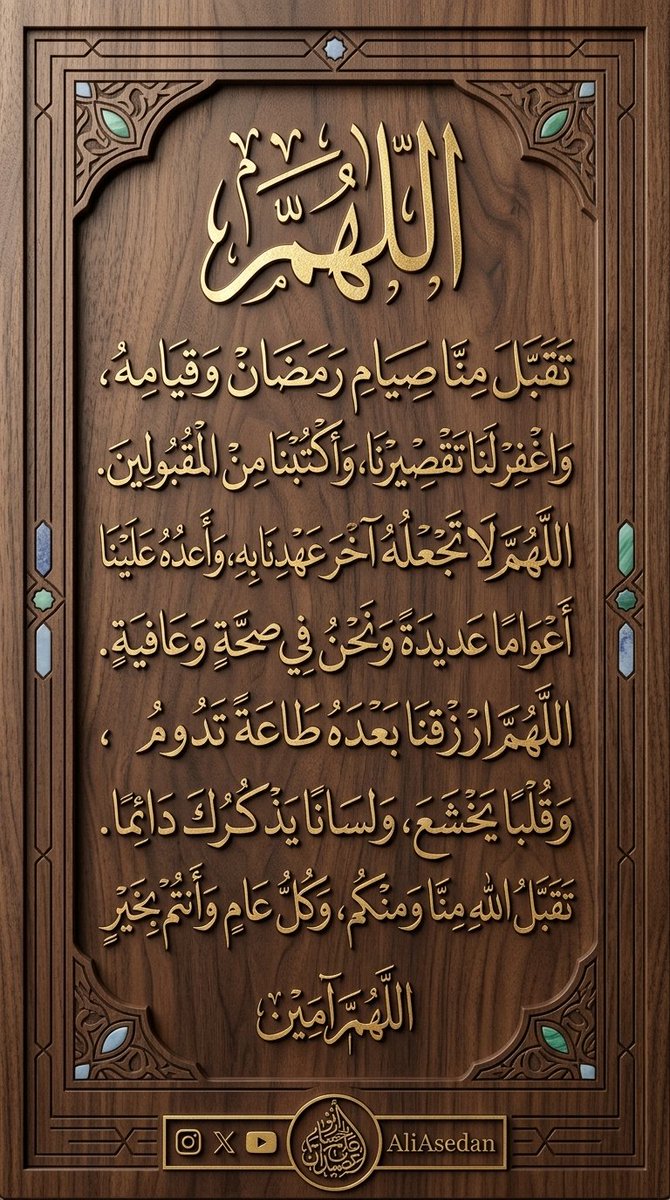 اللّهُمَّ
تَقَبَّلَ مِنَّا صِيَامِ رَمَضَانْ وَقِيَامِهُ،
وَاغْفِرْلَنَا تَقْصِيْرنَا، وَأكْتُبْنَا مِنْ الْمَقُبُولِينَ.
اللَّهُمَّ لَا تَجْعَلُهُ آخَرَ عَهْدِنَا بِهِ، وَأَعدُهُ عَلَيْنَا
أَعْوَامًا عَديدَةً وَنَحْنُ فِي صحَّةٍ وَعَافيَةٍ.
اللَّهُمَّ ارْزُقنَا بَعْدَهُ طَاعَةً تَدُومُ ،
وَقُلْبًا يَخْشَعَ، وَلسَانًا يَذْكُرُكَ دَائِمًا.
تَقَبَّلُ اللهِ مِنَّا وَمنْكُم، وَكُلُّ عَامٍ وَأَنتُمْ بِخَيْرٍ
اللَّهُمَّ آمَيْنْ
AliAsedan